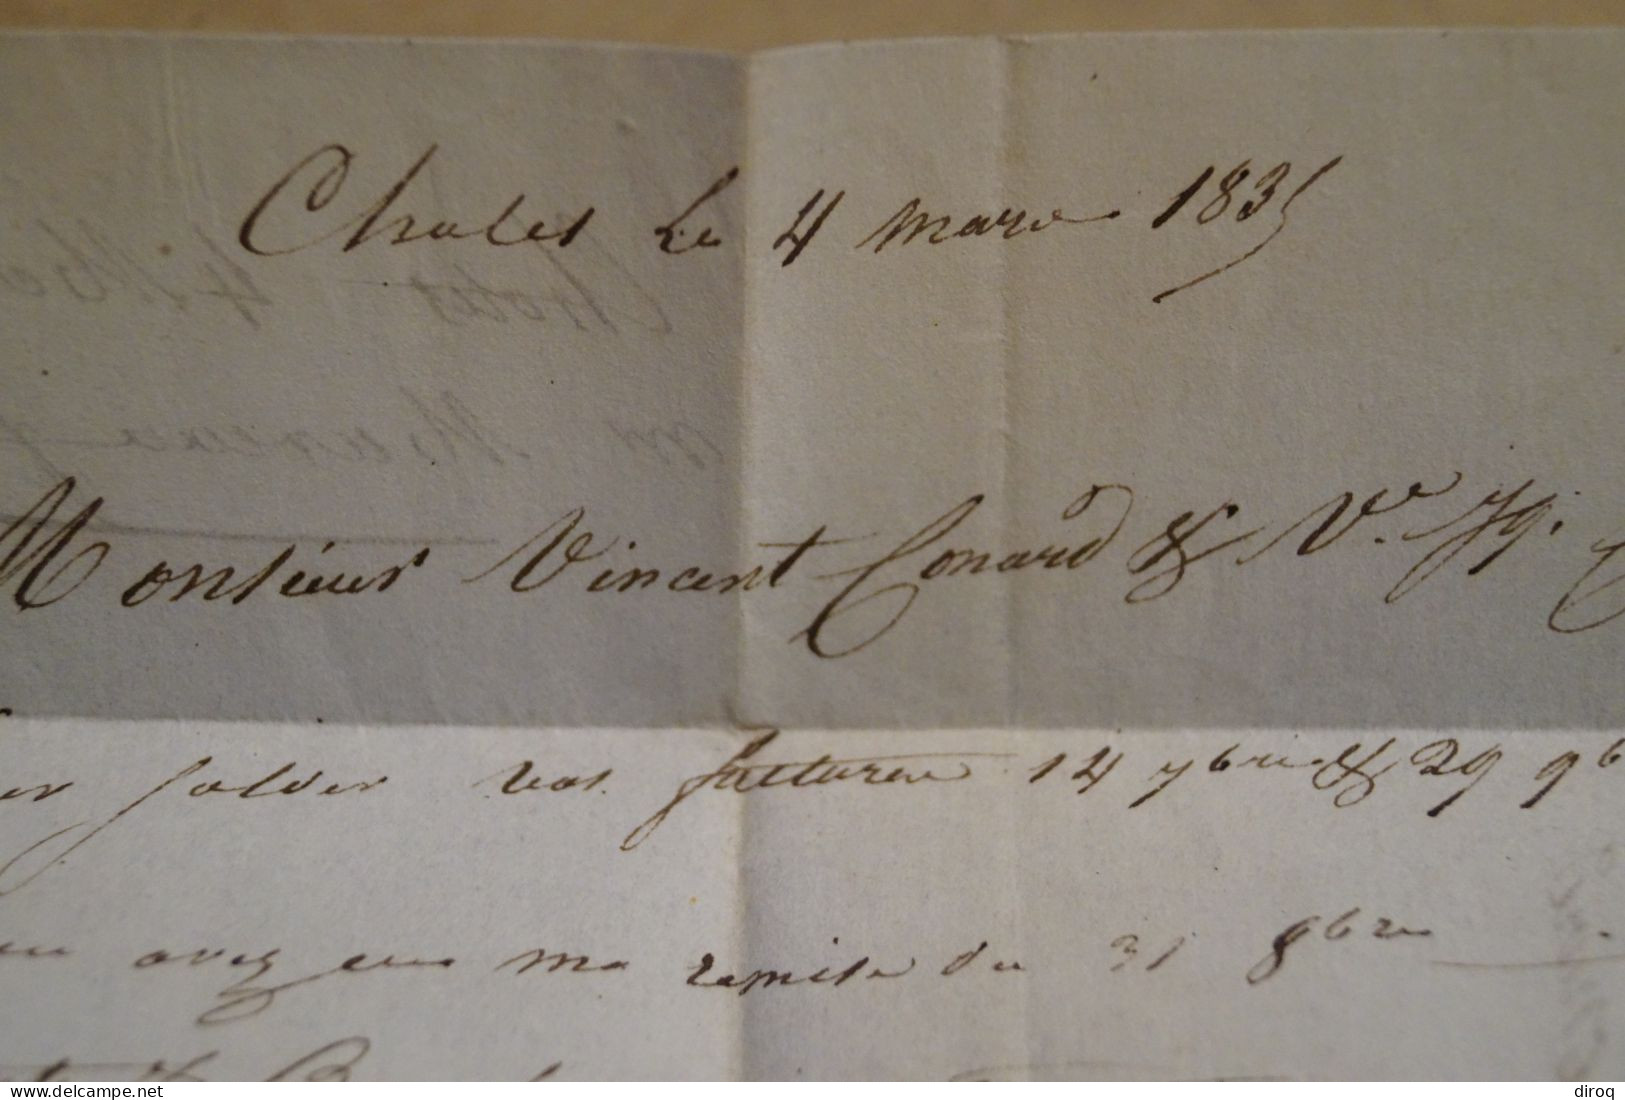 Cholet Le 4 mars 1835
Monsieur Vincent Conard & Ve. Jq.
solder vos factures 14 7bre & 29 9b
avez eu ma remise du 31 8bre
diroq